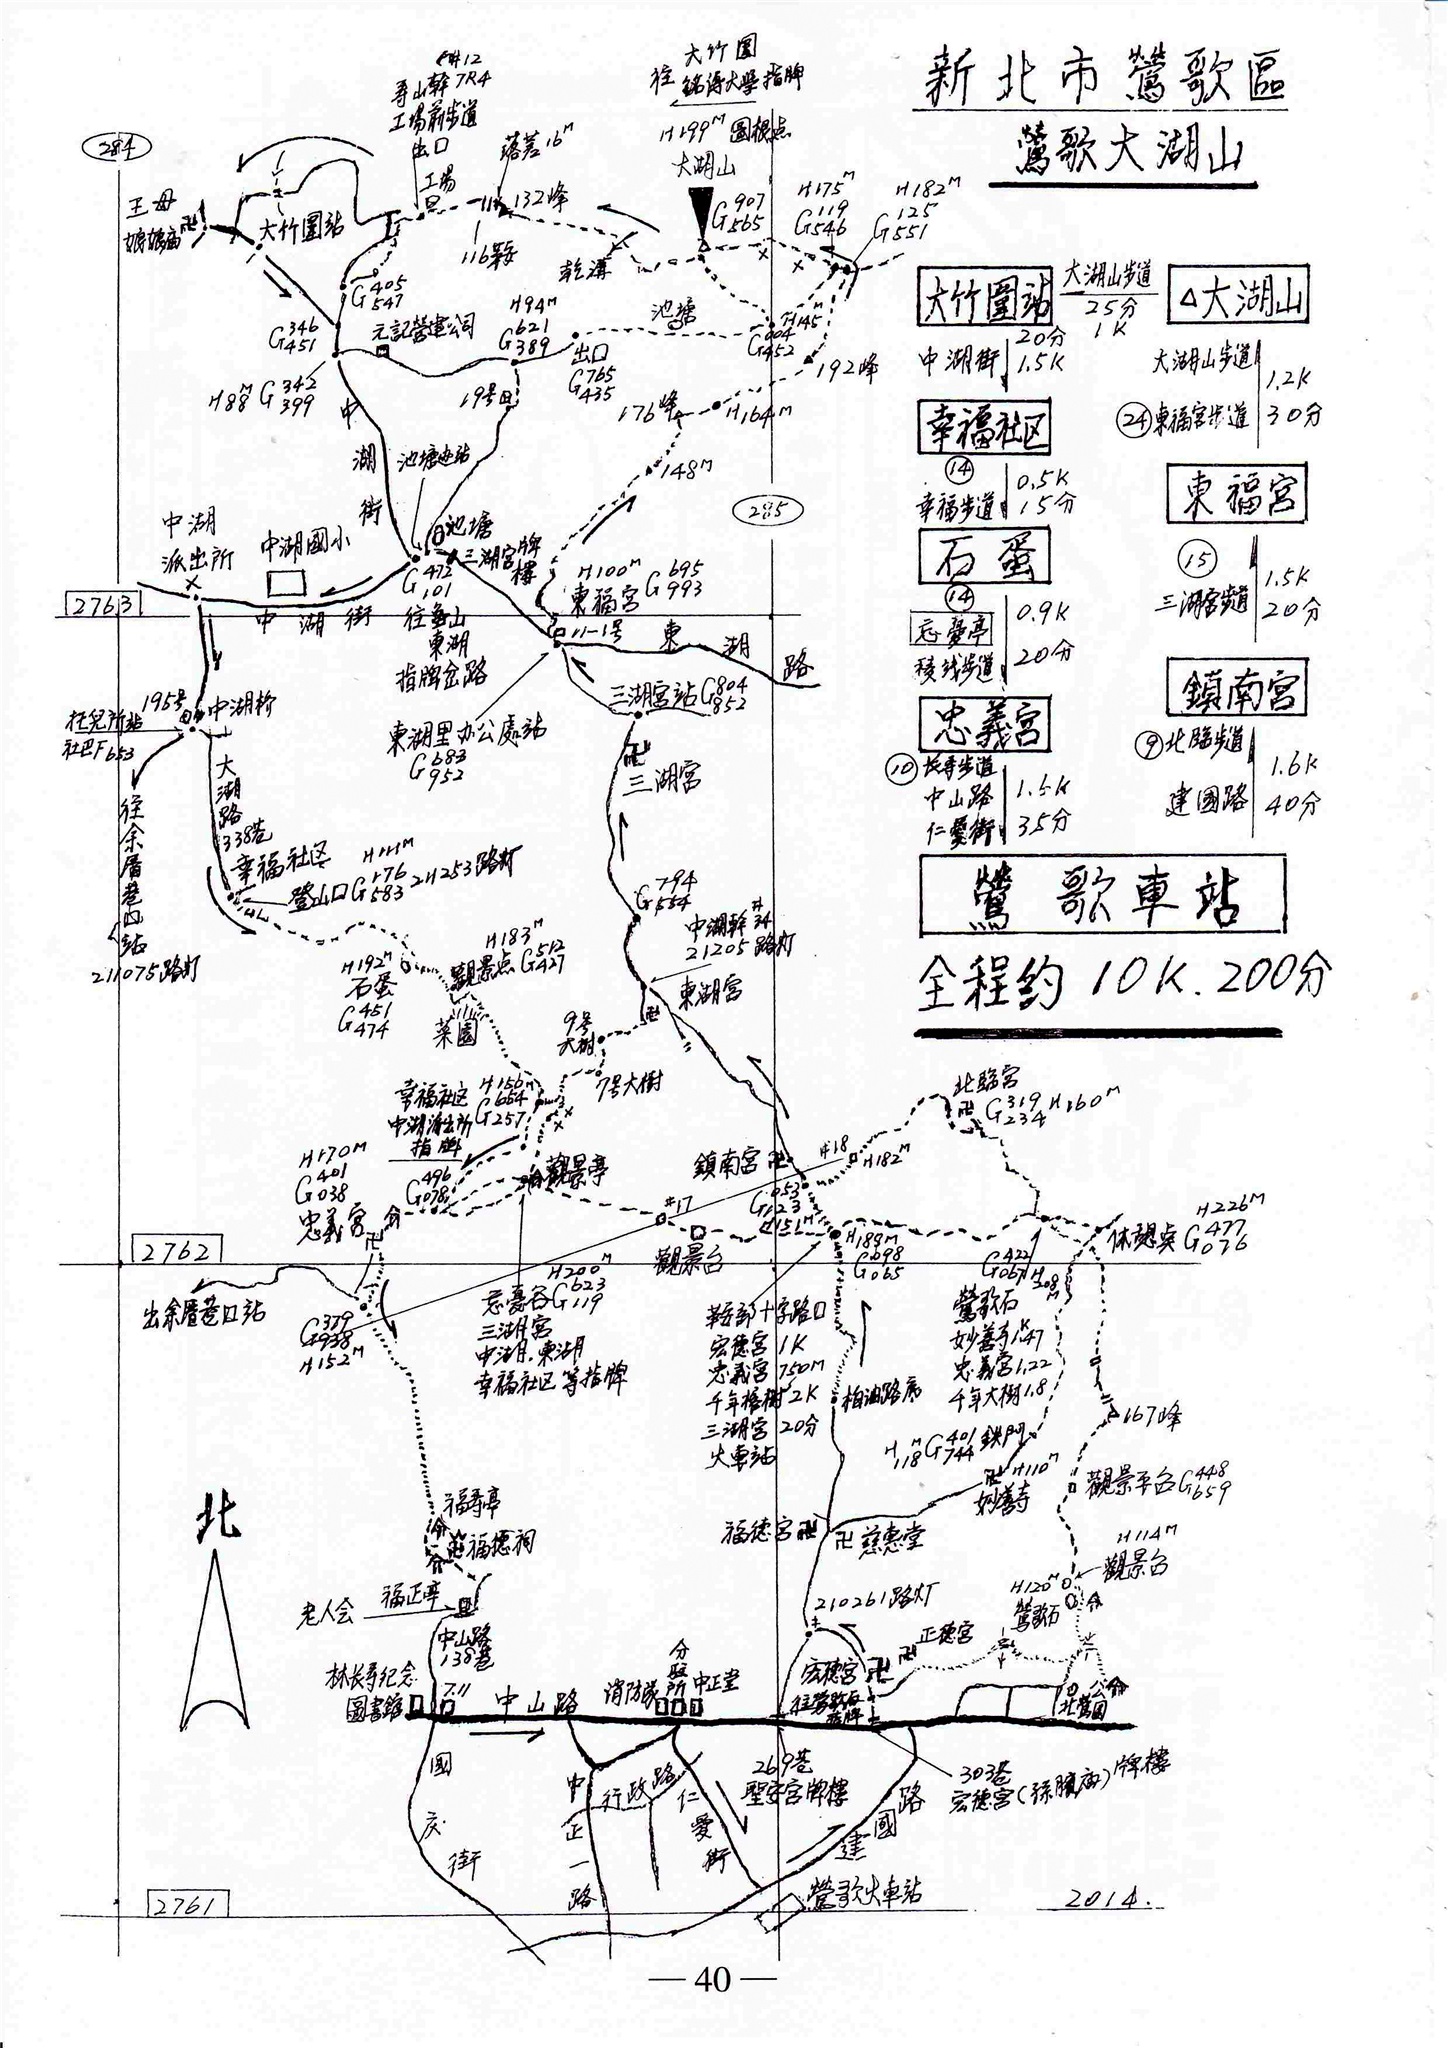 新北市鶯歌區
鶯歌大湖山
大竹圍
往銘傳大學指牌
H199M 圖根点
大湖山
G907
565
壽山幹 7R4
工場前步道
出口
落差16M
284
王母
娘娘庙
大竹圍站
工場
132峰
116鞍
乾溝
H175M
G119
546
H182M
G125
551
G405
547
G346
451
元記營建公司
H94M
G621
389
池塘
H145M
G004
452
出口
G765
435
192峰
H88M G342
399
19号
176峰
H164M
148M
中湖街
池塘边站
285
中湖
派出所
中湖國小
池塘
三湖宮牌樓
G472
101
H100M
東福宮
G695
993
2763
中湖街
往龜山
東湖
指牌岔路
11-1号
東湖路
三湖宮站 G804
852
195号
中湖桥
托兒所站
社巴F653
東湖里办公處站
G683
952
三湖宮
大湖路
338巷
往余厝巷口站
幸福社区
登山口
G176
583
21253路灯
211075路灯
G794
554
中湖幹#34
21205路灯
H183M
觀景点 G512
427
H192M
石蛋
G451
474
菜園
東湖宮
9号
大樹
7号大樹
幸福社区
中湖派出所
指牌
H156M
G654
257
H170M
G401
038
忠義宮
G496
078
觀景亭
鎮南宮
#18
H182M
#17
觀景台
北臨宮
G319
234
H160M
G053
123
H151M
H189M
G098
065
H226M
休憩点 G477
076
2762
出余厝巷口站
G379
938
H152M
H200M
忘憂谷 G623
119
三湖宮
中湖.東湖
幸福社区等指牌
鞍部十字路口
宏德宮 1K
忠義宮 750M
千年樟樹 2K
三湖宮 20分
火車站
柏油路底
G422
067
鶯歌石
妙善寺1.47
忠義宮1.22
千年大樹1.8
167峰
H118M G401
744
鉄門
H110M
妙善寺
觀景平台 G448
659
H114M
觀景台
H120M
鶯歌石
福德宮
慈惠堂
北
福壽亭
福德祠
福正亭
老人会
中山路
138巷
210261路灯
正德宮
宏德宮
林長壽紀念
圖書館
7.11
中山路
消防隊
分駐所
中正堂
國慶街
中正一路
行政路
仁愛街
269巷
聖安宮牌樓
建國路
303巷
宏德宮(孫臏庙)牌樓
2761
鶯歌火車站
2014.
大竹圍站
大湖山步道
25分
1K
△大湖山
中湖街
20分
1.5K
幸福社区
大湖山步道
㉔東福宮步道
1.2K
30分
⑭
幸福步道
0.5K
15分
東福宮
石蛋
⑮
三湖宮步道
1.5K
20分
⑭
忘憂亭
稜线步道
0.9K
20分
鎮南宮
忠義宮
⑨北臨步道
建國路
1.6K
40分
⑩長壽步道
中山路
仁愛街
1.5K
35分
鶯歌車站
全程約10K.200分
— 40 —